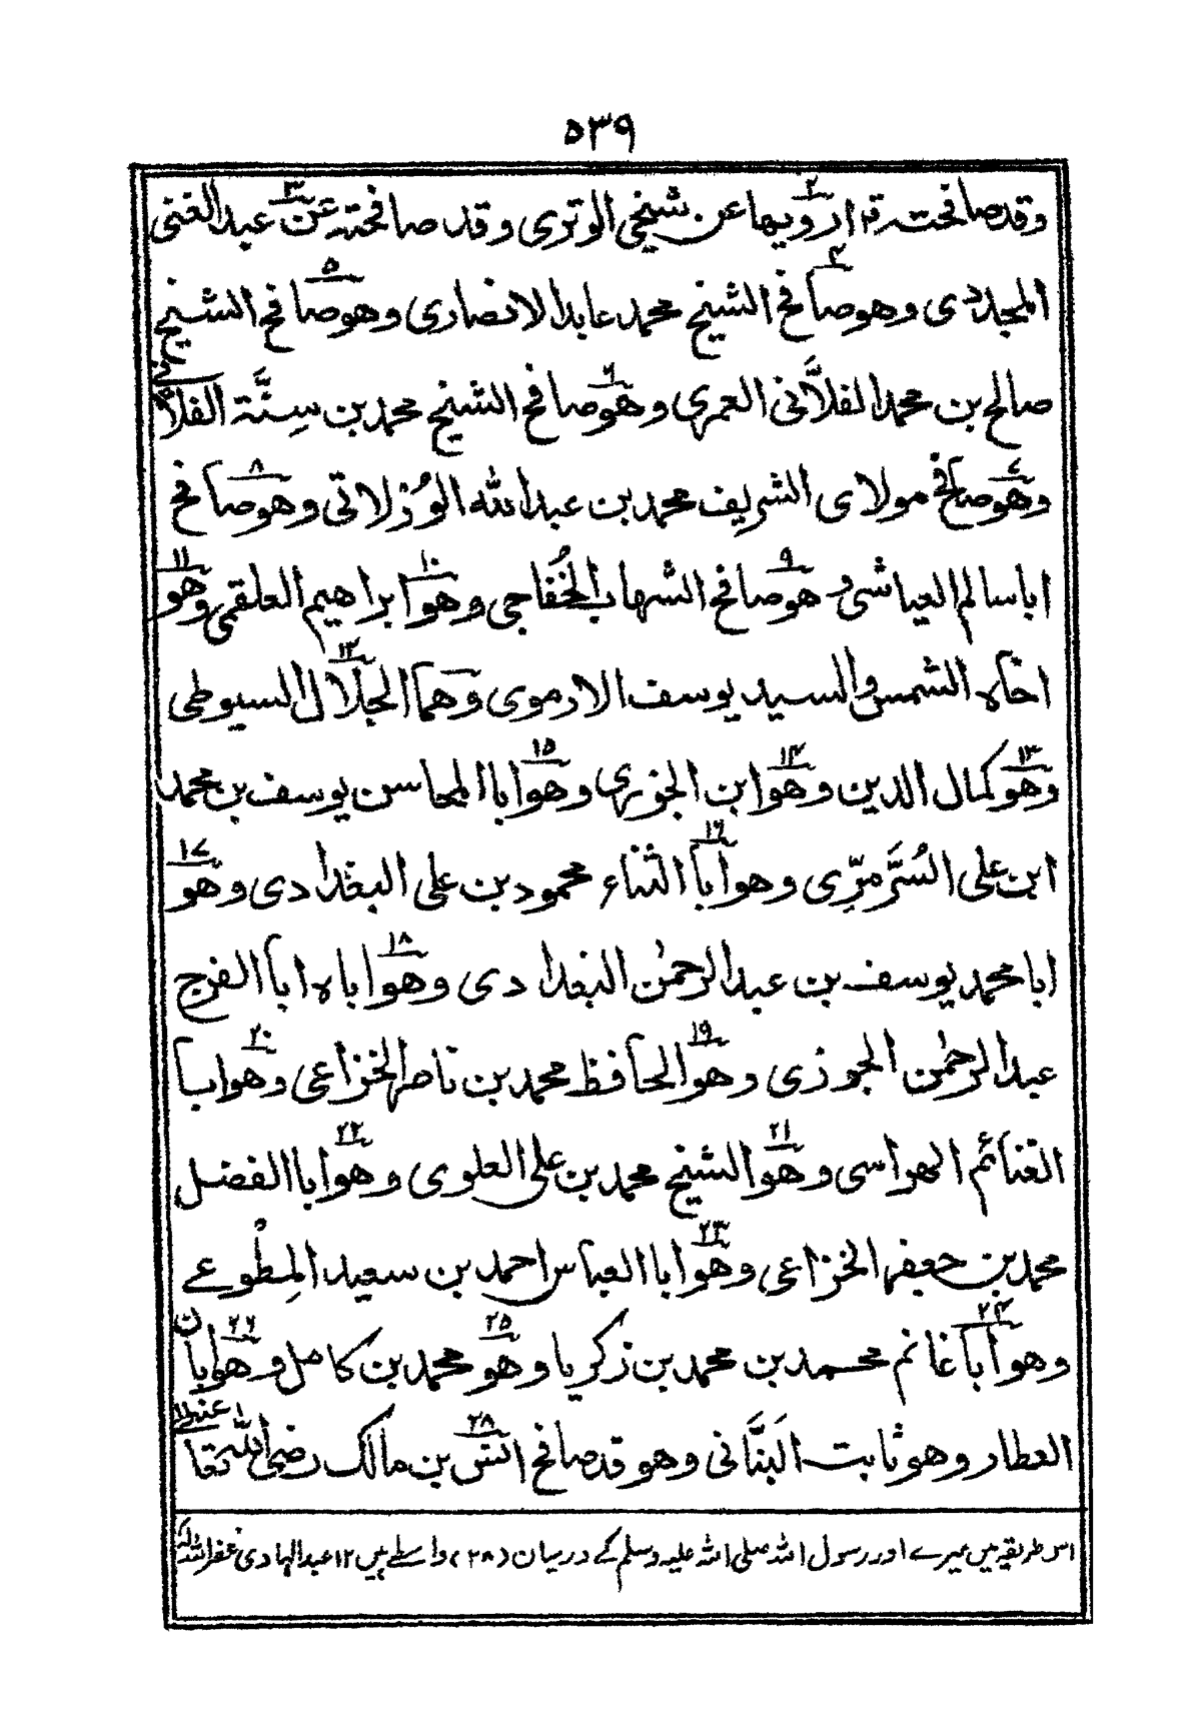 ٥٣٩
وقد صافحته قال ارويها عن شيخي الوتري وقد صافحته عن عبد الغني
٢ ٣
المجددى وهو صافح الشيخ محمد عابد الانصارى وهو صافح الشيخ
٤ ٥
صالح بن محمد الفلَّانى العمرى وهو صافح الشيخ محمد بن سِنَّة الفلانى
٦
وهو صافح مولاى الشريف محمد بن عبد الله الوُزلاتى وهو صافح
٧ ٨
ابا سالم العياشى وهو صافح الشهاب الخُفاجى وهو ابراهيم العلقمى وهو
٩ ١٠ ١١
اخاه الشمس والسيد يوسف الارموى وهما الجلال السيوطى
١٢
وهو كمال الدين وهو ابن الجزرى وهو ابا المحاسن يوسف بن محمد
١٣ ١٤ ١٥
ابن على السُرَّمرِّى وهو ابا الثناء محمود بن على البغدادى وهو
١٦ ١٧
ابا محمد يوسف بن عبد الرحمٰن البغدادى وهو اباه ابا الفرج
١٨
عبد الرحمٰن الجوزى وهو الحافظ محمد بن ناصر الخزاعى وهو ابا
١٩ ٢٠
الغنائم الهراسى وهو الشيخ محمد بن على العلوى وهو ابا الفضل
٢١ ٢٢
محمد بن جعفر الخزاعى وهو ابا العباس احمد بن سعيد المِطْوعے
٢٣
وهو ابا غانم محمد بن محمد بن زكريا وهو محمد بن كامل وهو ابان
٢٤ ٢٥ ٢٦
العطار وهو ثابت البَنَّانى وهو قد صافح انس بن مالك رضى الله تعا عنه
٢٨
اس طریقہ میں میرے اور رسول اللہ صلی اللہ علیہ وسلم کے درمیان (٢٨) واسطے ہیں ١٢ عبد الہادی غفر اللہ لہ